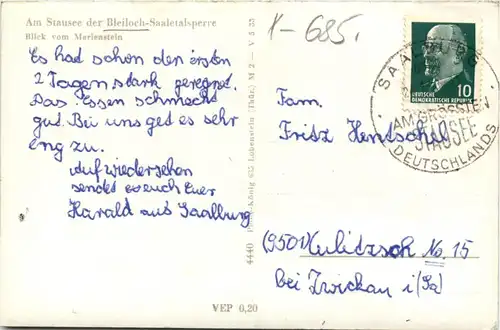 Am Stausee der Bleiloch-Saaletalsperre
Blick vom Marienstein
K-685.
Es hat schon den ersten
2 Tagen stark geregnet.
Das Essen schmeckt
gut. Bei uns ged es sehr
eng zu.
Auf wiedersehen
sendet es euch Euer
Harald aus Saalburg
4440 König Lobenstein (Thür.) M 2 – V 5 55
10
DEUTSCHE
DEMOKRATISCHE REPUBLIK
SAALBURG
AM GRÖSSTEN
STAUSEE
DEUTSCHLANDS
Fam.
Fritz Hentschel
(9501) Kulitzsch No. 15
bei Zwickau i/Sa)
VEP 0,20